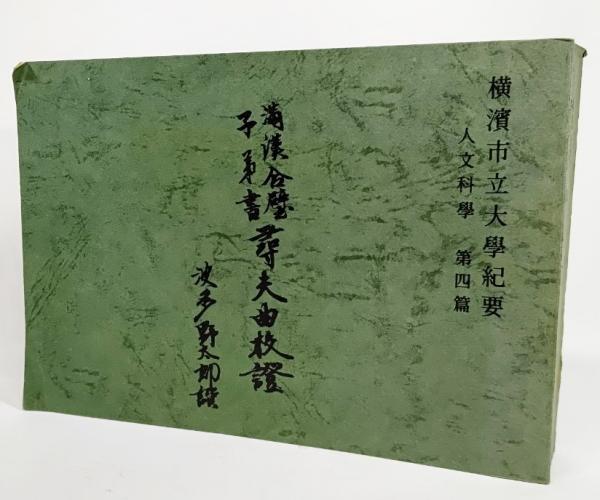 横濱市立大學紀要
人文科學 第四篇
滿漢合璧
子弟書
尋夫曲校證
波多野太郎譔